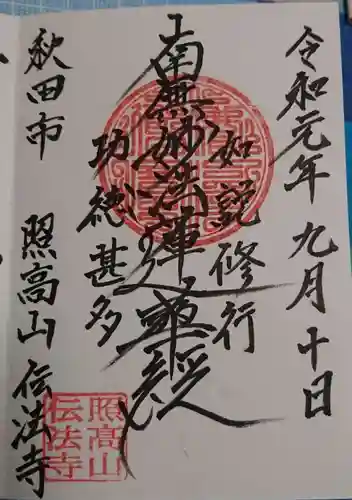 令和元年九月十日
如説修行
南無妙法蓮華経
功徳甚多
秋田市 照高山 伝法寺
照高山
伝法寺